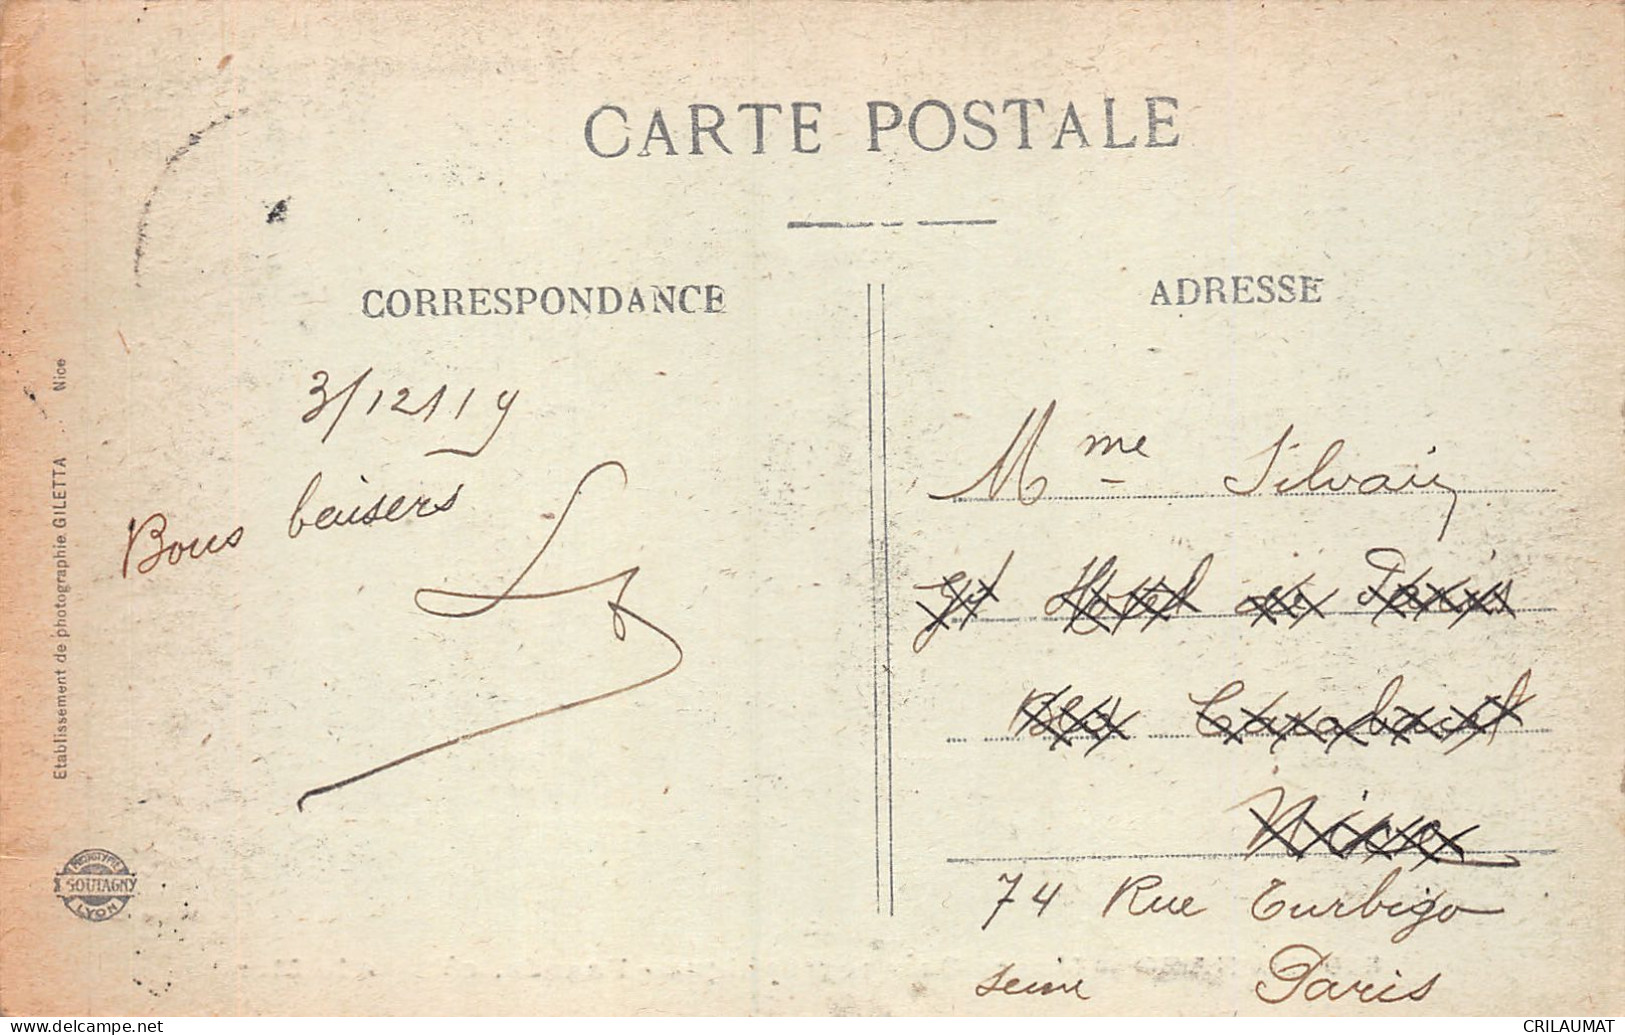 CARTE POSTALE
CORRESPONDANCE
ADRESSE
3/12/19
Bons baisers
Mme Silvain
Hotel de Paris
Bd Carabacel
Nice
74 Rue Turbigo
Seine Paris
Etablissement de photographie GILETTA .. Nice
PHOTOTYPIE
SOUTAGNY
LYON
CRILAUMAT